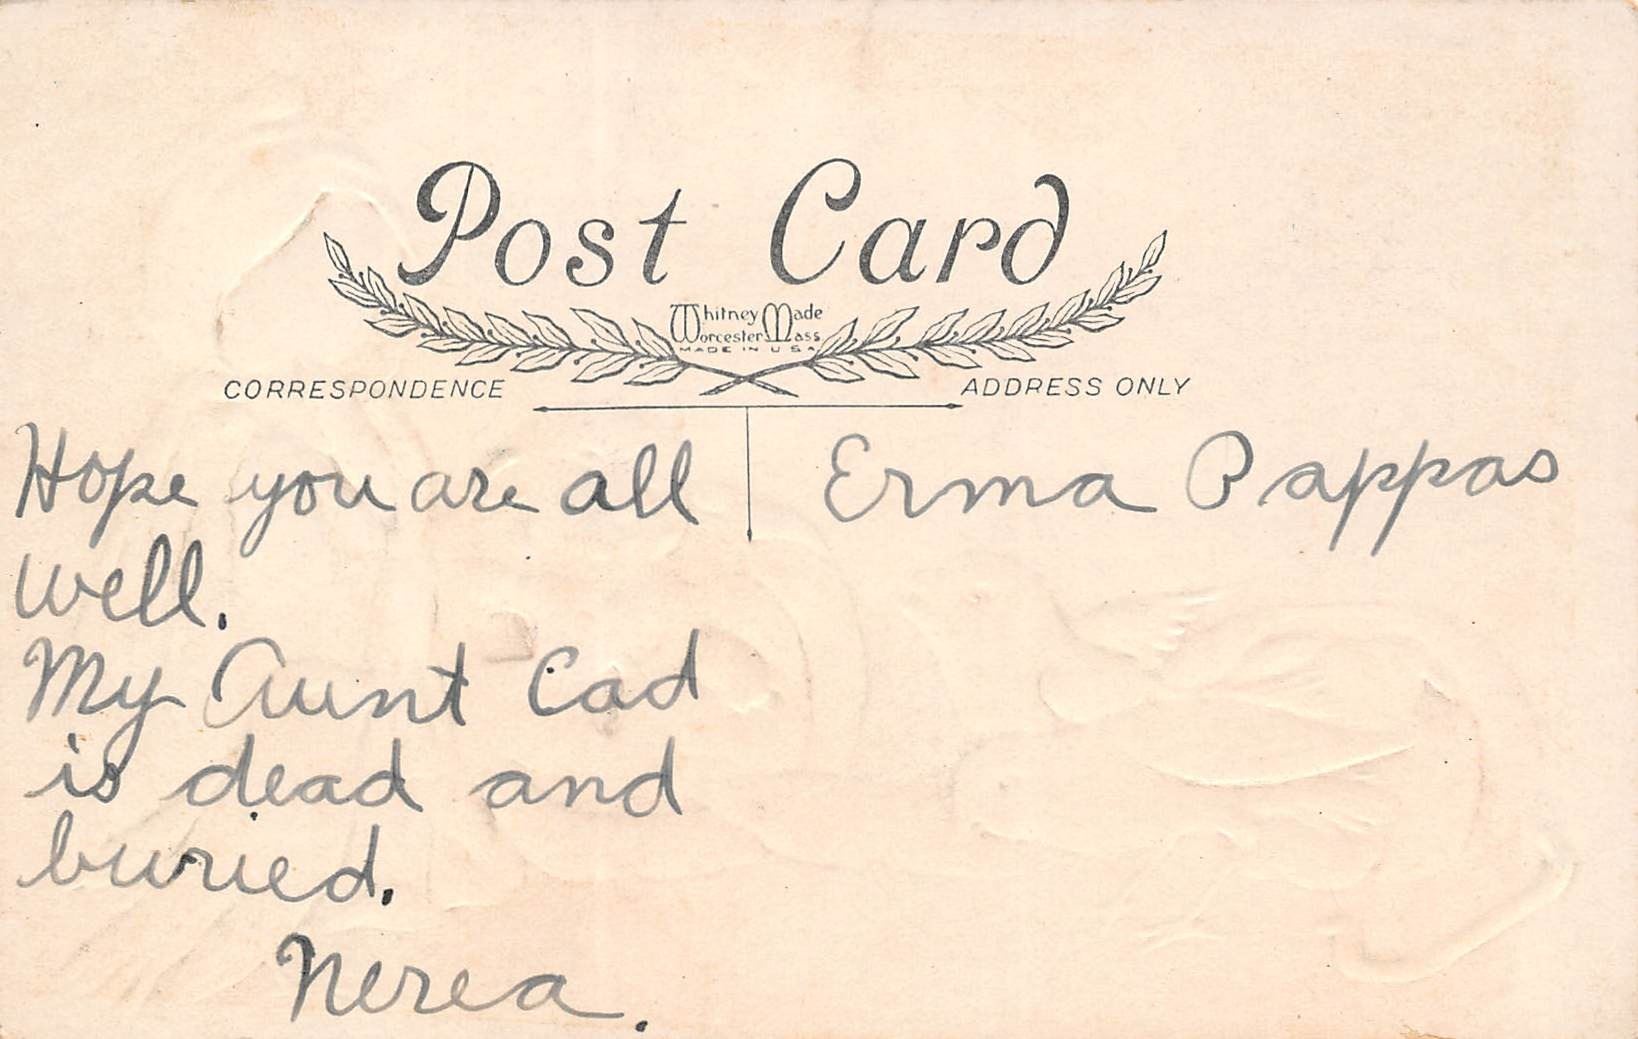 Post Card
Whitney Made
Worcester Mass
MADE IN U S A
CORRESPONDENCE
ADDRESS ONLY
Hope you are all
well.
My Aunt Cad
is dead and
buried.
Nerea.
Erma Pappas